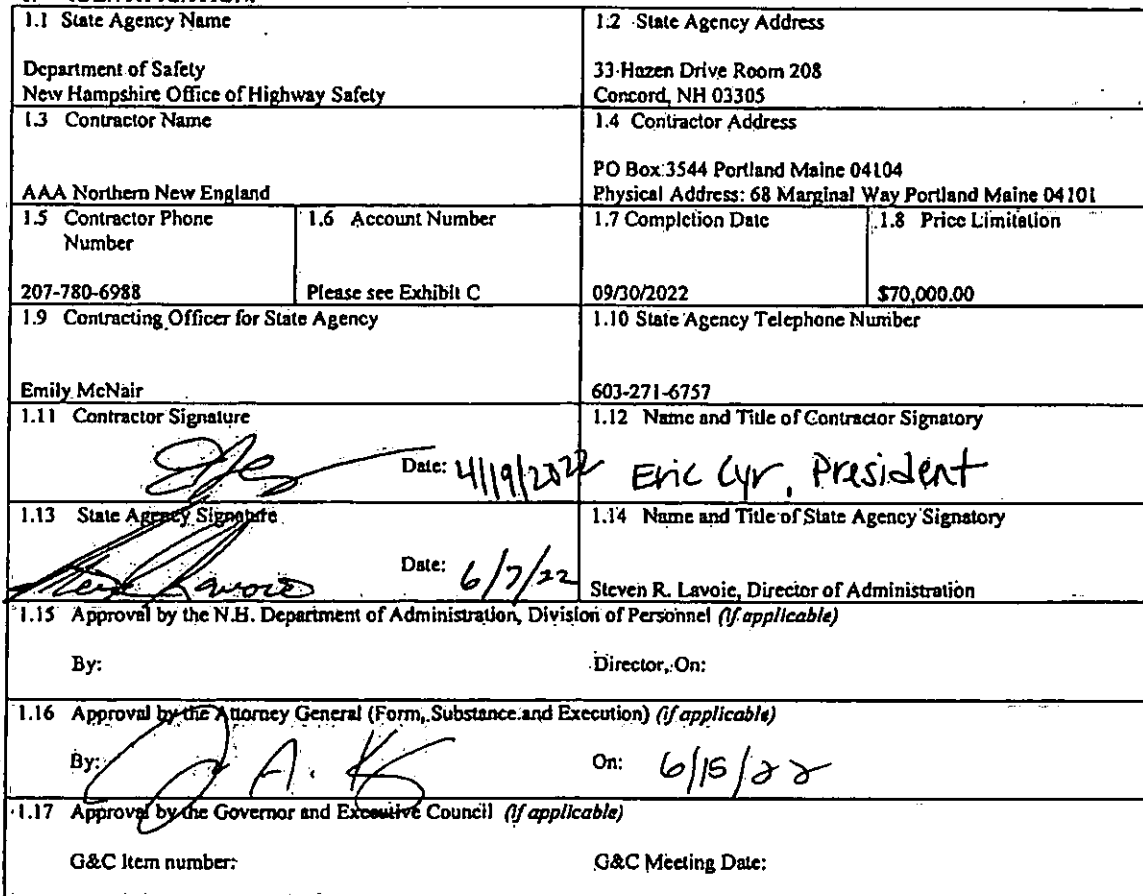 1.1 State Agency Name
Department of Safety
New Hampshire Office of Highway Safety
1.2 State Agency Address
33 Hazen Drive Room 208
Concord, NH 03305
1.3 Contractor Name
AAA Northern New England
1.4 Contractor Address
PO Box 3544 Portland Maine 04104
Physical Address: 68 Marginal Way Portland Maine 04101
1.5 Contractor Phone
Number
207-780-6988
1.6 Account Number
Please see Exhibit C
1.7 Completion Date
09/30/2022
1.8 Price Limitation
$70,000.00
1.9 Contracting Officer for State Agency
Emily McNair
1.10 State Agency Telephone Number
603-271-6757
1.11 Contractor Signature
Date: 4/19/2022
1.12 Name and Title of Contractor Signatory
Eric Cyr, President
1.13 State Agency Signature
Date: 6/7/22
1.14 Name and Title of State Agency Signatory
Steven R. Lavoie, Director of Administration
1.15 Approval by the N.H. Department of Administration, Division of Personnel (if applicable)
By:
Director, On:
1.16 Approval by the Attorney General (Form, Substance and Execution) (if applicable)
By:
On: 6/15/22
1.17 Approval by the Governor and Executive Council (if applicable)
G&C Item number:
G&C Meeting Date: